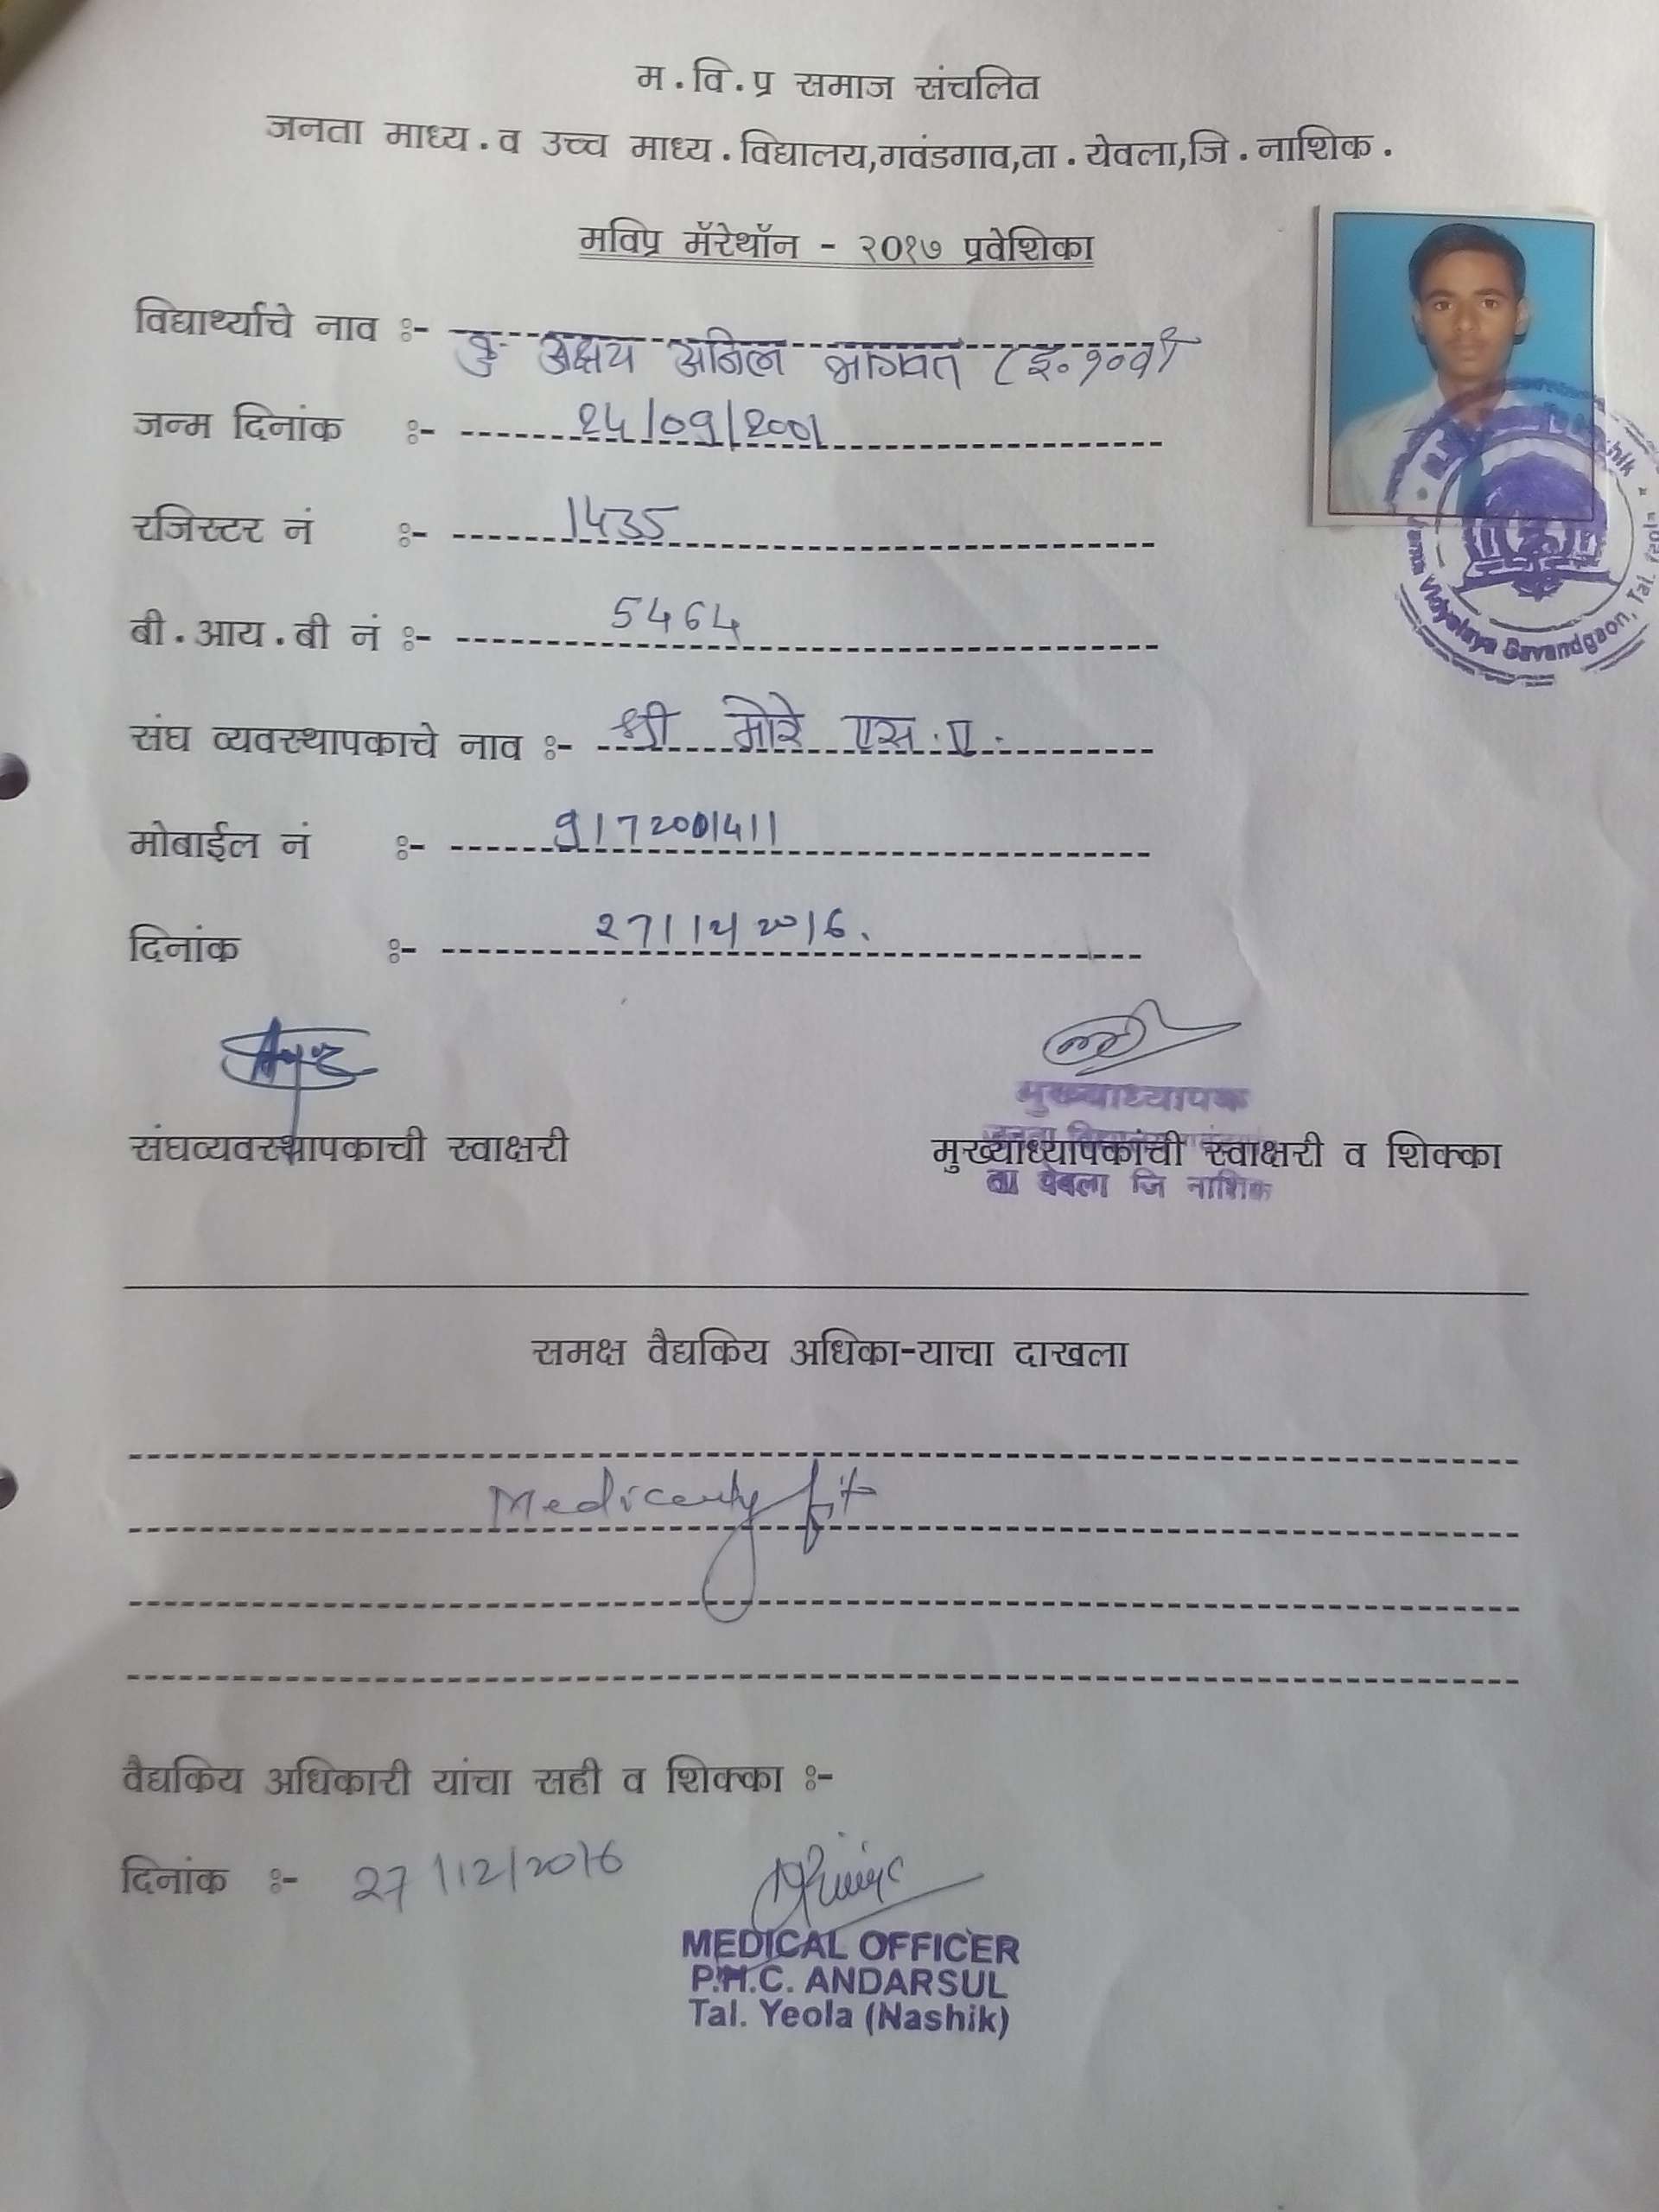 म.वि.प्र समाज संचलित
जनता माध्य.व उच्च माध्य.विद्यालय,गवंडगाव,ता.येवला,जि.नाशिक.
मविप्र मॅरेथॉन - २०१७ प्रवेशिका
विद्यार्थ्याचे नाव :- कु. अक्षय अनिल भागवत (इ.१०वी
जन्म दिनांक :- 24/09/2001
रजिस्टर नं :- 1435
बी.आय.बी नं :- 5464
संघ व्यवस्थापकाचे नाव :- श्री मोरे एस.ए.
मोबाईल नं :- 9172001411
दिनांक :- 27/12/2016.
Vidyalaya Gavandgaon, Tal.
मुख्याध्यापक
संघव्यवस्थापकाची स्वाक्षरी मुख्याध्यापकांची स्वाक्षरी व शिक्का
जनता विद्यालय
ता येवला जि नाशिक
समक्ष वैद्यकिय अधिका-याचा दाखला
Medically fit
वैद्यकिय अधिकारी यांचा सही व शिक्का :-
दिनांक :- 27/12/2016
MEDICAL OFFICER
P.H.C. ANDARSUL
Tal. Yeola (Nashik)